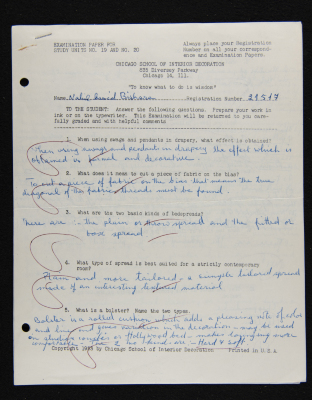 EXAMINATION PAPER FOR
STUDY UNITS NO. 19 AND NO. 20
Always place your Registration
Number on all your correspond-
ence and Examination Papers.
CHICAGO SCHOOL OF INTERIOR DECORATION
835 Diversey Parkway
Chicago 14, Ill.
"To know what to do is wisdom"
Name Registration Number 21517
TO THE STUDENT: Answer the following questions. Prepare your work in
ink or on the typewriter. This Examination will be returned to you care-
fully graded with helpful comments
1. When using swags and pendants in drapery, what effect is obtained?
When using swags and pendents in drapery the effect which is
obtained is formal and decorative.
2. What does it mean to cut a piece of fabric on the bias?
To cut a piece of fabric on the bias that means the true
diagonal of the fabric threads must be found.
3. What are the two basic kinds of bedspreads?
There are :- the plain or throw spread and the fitted or
box spread
4. What type of spread is best suited for a strictly contemporary
room?
Plain and more tailored - a simple tailored spread
made of an interesting textured material
5. What is a bolster? Name the two types.
Bolster is a rolled cushion which adds a pleasing note of color
and line and gives variation in the decoration - may be used
on studio couches or Hollywood beds - makes lounging more
comfortable - The 2 two kind are - Hard & soft.
Copyright 1948 by Chicago School of Interior Decoration Printed in U.S.A.